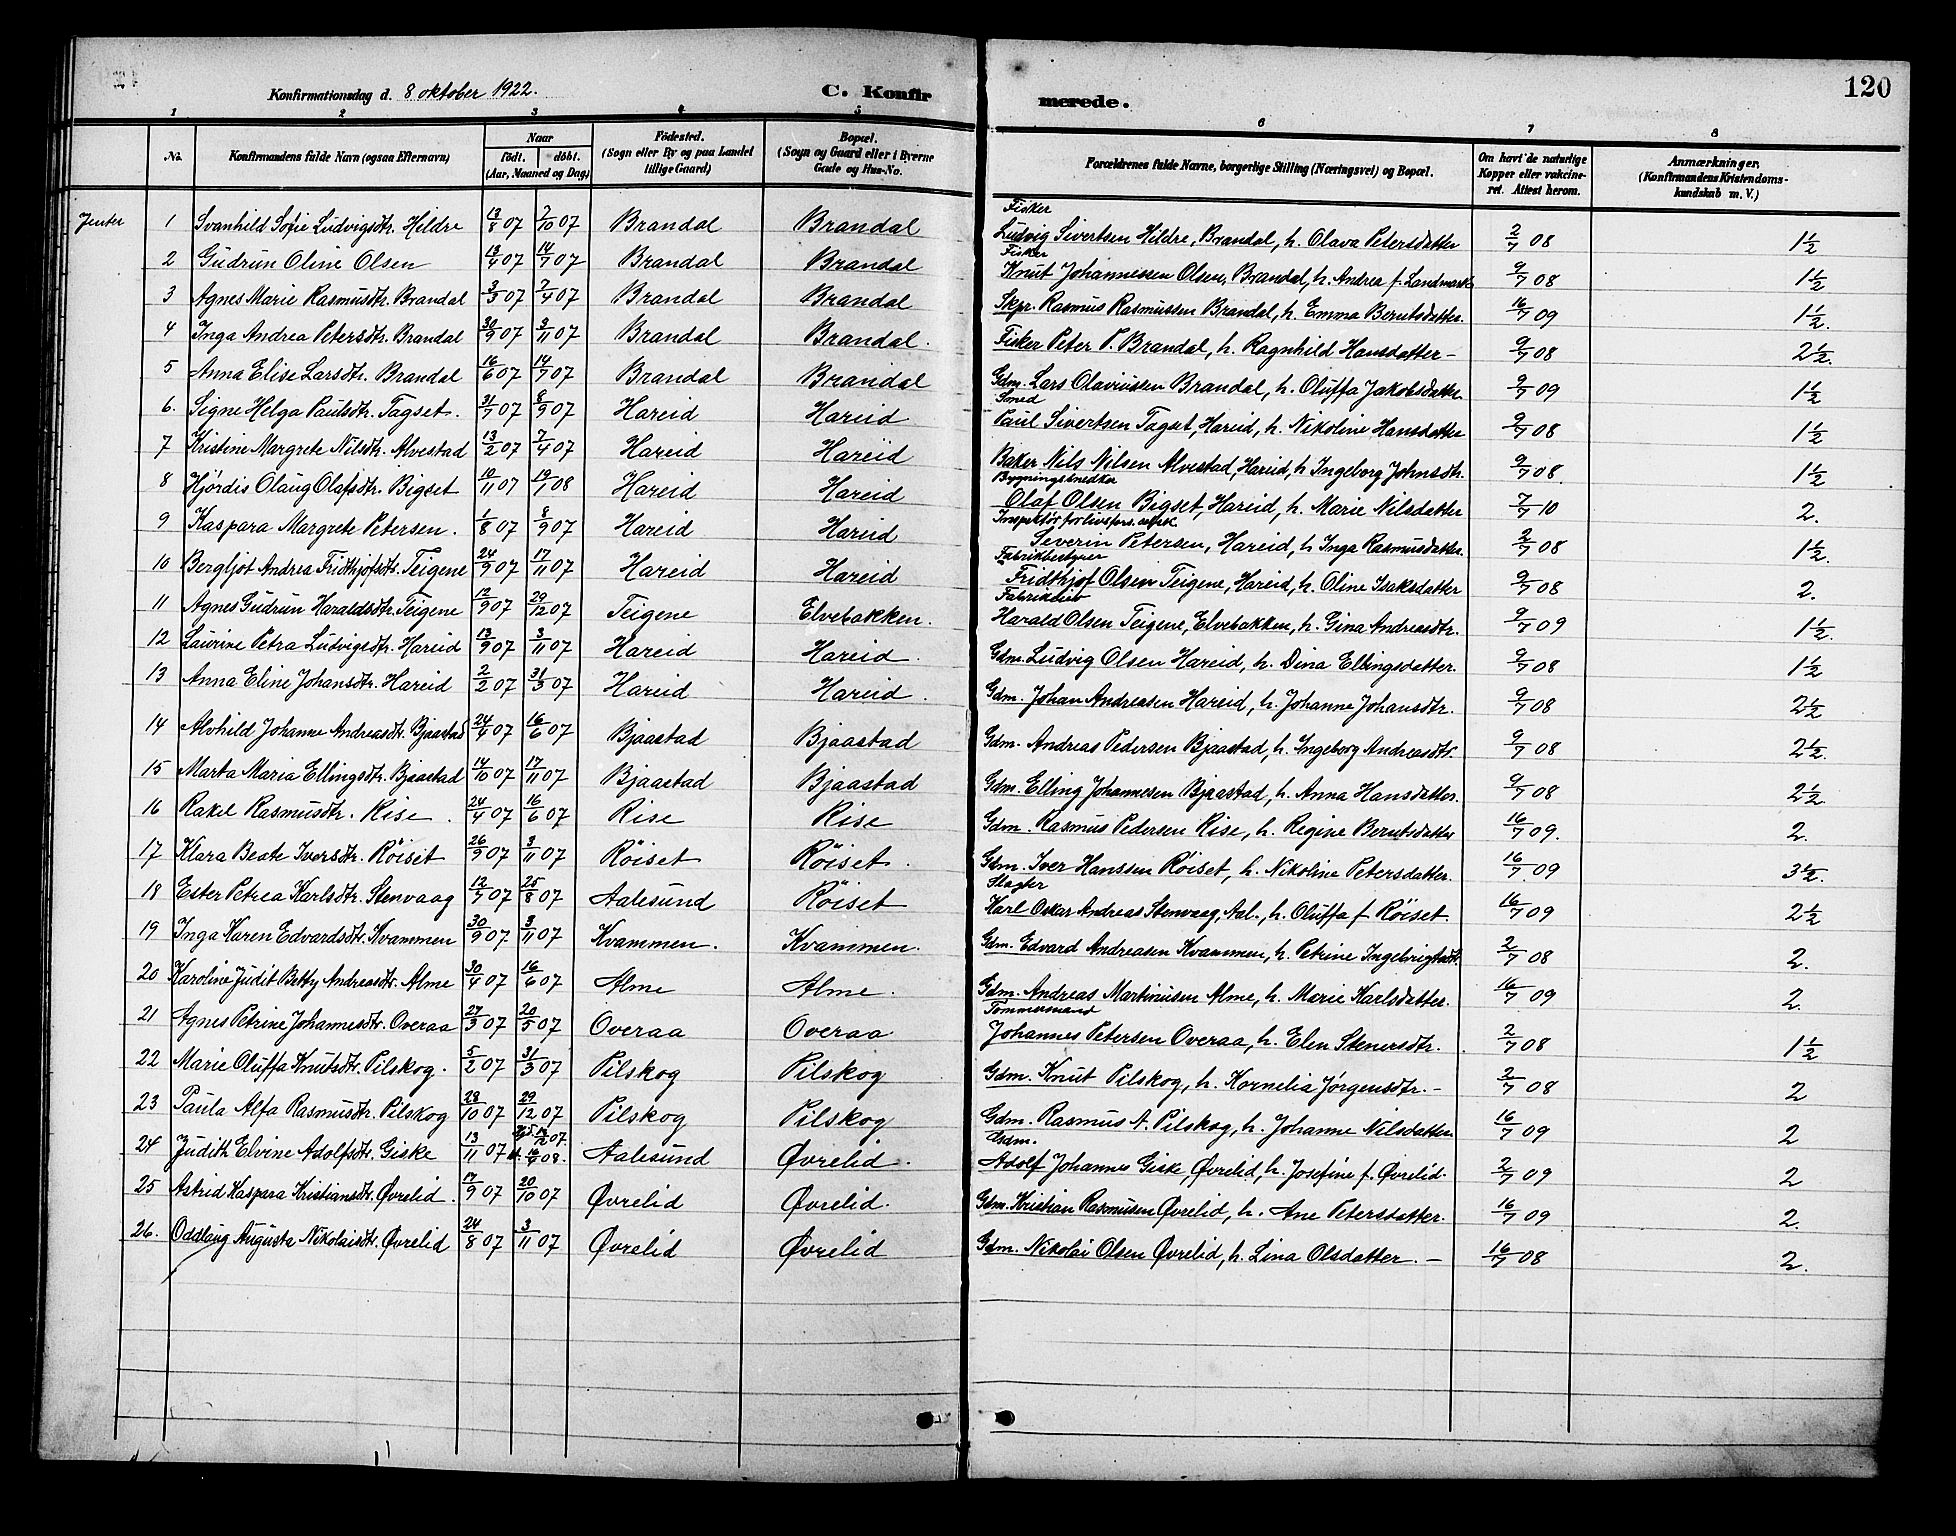 120
Konfirmationsdag d. 8 oktober 1922.
C. Konfirmerede.
1 2 3 4 5 6 7 8
No. Konfirmandens fulde Navn (ogsaa Efternavn) Naar födt. döbt. (Aar, Maaned og Dag) Födested. (Sogn eller By og paa Landet tillige Gaard) Bopæl. (Sogn og Gaard eller i Byerne Gade og Hus-No. Forældrenes fulde Navne, borgerlige Stilling (Næringsvei) og Bopæl. Om havt de naturlige Kopper eller vakcineret. Attest herom. Anmærkninger. (Konfirmandens Kristendomskundskab m. V.)
Jenter 1 Svanhild Sofie Ludvigsdtr. Hildre 13/8 07 7/10 07 Brandal Brandal Fisker Ludvig Sivertsen Hildre, Brandal, h. Olava Petersdatter 2/7 08 1 1/2
2 Gudrun Oline Olsen 13/4 07 14/7 07 Brandal Brandal Fisker Knut Johannessen Olsen, Brandal, h. Andrea f. Landmark 9/7 08 1 1/2
3 Agnes Marie Rasmusdtr. Brandal 3/3 07 7/4 07 Brandal Brandal Skpr. Rasmus Rasmussen Brandal, h. Emma Berntsdatter. 16/7 09 1 1/2.
4 Inga Andrea Petersdtr. Brandal 30/9 07 3/11 07 Brandal Brandal. Fisker Peter P. Brandal, h. Ragnhild Hansdatter - 9/7 08 2 1/2.
5 Anna Elise Larsdtr. Brandal 16/6 07 14/7 07 Brandal Brandal Gdm. Lars Olaviussen Brandal, h. Oluffa Jakobsdatter 9/7 09 1 1/2
6. Signe Helga Paulsdtr. Tagset. 31/7 07 8/9 07 Hareid Hareid Smed Paul Sivertsen Tagset, Hareid, h. Nikoline Hansdatter 9/7 08 1 1/2
7 Kristine Margrete Nilsdtr. Alvestad 13/2 07 7/4 07 Hareid Hareid Baker Nils Nilsen Alvestad, Hareid, h Ingeborg Johnsdtr. 9/7 08. 1 1/2
8 Hjördis Olaug Olafsdtr. Bigset 10/11 07 19/1 08 Hareid Hareid Bygningssnedker Olaf Olsen Bigset, Hareid, h. Marie Nilsdatter 7/7 10 2.
9 Kaspara Margrete Petersen. 1/8 07 8/9 07 Hareid Hareid Inspektör for livsfors. Severin Petersen, Hareid, h Inga Rasmusdatter. 2/7 08 1 1/2.
10 Bergljot Andrea Fridthjofsdtr. Teigene 24/9 07 17/11 07 Hareid Hareid Fabrikbestyrer Fridthjof Olsen Teigene, Hareid, h. Oline Isaksdatter 9/7 08 2.
11 Agnes Gudrun Haraldsdtr. Teigene 12/9 07 29/12 07 Teigene Elvebakken. Harald Olsen Teigene, Elvebakken, h. Gina Andreasdtr. 9/7 09 1 1/2.
12 Laurine Petra Ludvigsdtr. Hareid 13/9 07 3/11 07 Hareid Hareid. Gdm. Ludvig Olsen Hareid, h. Dina Ellingsdatter. 9/7 08 1 1/2
13 Anna Eline Johansdtr. Hareid 2/2 07 31/3 07 Hareid Hareid. Gdm. Johan Andreasen Hareid, h. Johanne Johansdtr. 9/7 08 2 1/2
14 Alvhild Johanne Andreasdtr. Bjaastad 24/4 07 16/6 07 Bjaastad Bjaastad Gdm. Andreas Pedersen Bjaastad, h. Ingeborg Andreasdtr. 9/7 08 2 1/2.
15 Marta Maria Ellingsdtr. Bjaastad 14/10 07 17/11 07 Bjaastad Bjaastad Gdm. Elling Johannesen Bjaastad, h. Anna Hansdatter. 9/7 08 2 1/2.
16 Rakel Rasmusdtr. Rise. 24/4 07 16/6 07 Rise Rise Gdm. Rasmus Pedersen Rise, h. Regine Berntsdatter 16/7 09. 2.
17 Klara Beate Iversdtr. Röiset 26/9 07 3/11 07 Röiset Röiset. Gdm. Iver Hanssen Röiset, h. Nikoline Petersdatter. 16/7 09 3 1/2.
18 Ester Petrea Karlsdtr. Stenvaag 12/7 07 25/8 07 Aalesund Röiset Slagter Karl Oskar Andreas Stenvaag, Aal., h. Oluffa f. Röiset. 16/7 09 2 1/2
19 Inga Karen Edvardsdtr. Kvammen 30/9 07 3/11 07 Kvammen. Kvammen. Gdm. Edvard Andreasen Kvammen, h. Petrine Ingebrigtsdtr. 2/7 08 2.
20 Karoline Judit Betty Andreasdtr. Alme 30/4 07 16/6 07 Alme Alme. Gdm. Andreas Martinusen Alme, h. Marie Karlsdatter. 16/7 09 2.
21 Agnes Petrine Johannesdtr. Overaa 27/3 07 20/5 07 Overaa Overaa Tömmermand Johannes Petersen Overaa, h. Elen Stenersdtr. 2/7 08 1 1/2
22 Marie Oluffa Knutsdtr. Pilskog. 5/2 07 31/3 07 Pilskog Pilskog Gdm. Knut Pilskog, h. Kornelia Jörgensdtr. - 2/7 08 2
23 Paula Alfa Rasmusdtr. Pilskog 28/10 07 29/12 07 Pilskog Pilskog Gdm. Rasmus A. Pilskog, h. Johanne Nilsdatter. 16/7 09 2
24 Judith Elvine Adolfsdtr. Giske 13/11 07 Aalesund Øvrelid. Gdm. Adolf Johannes Giske, Øvrelid, h. Josefine f. Øvrelid. 2/7 09 2
25 Astrid Kaspara Kristiansdtr. Øvrelid. 17/9 07 20/10 07 Øvrelid Øvrelid. Gdm. Kristian Rasmusen Øvrelid, h. Ane Petersdatter. 16/7 09 2.
26. Oddlaug Augusta Nikolaisdtr. Øvrelid 24/8 07 3/11 07 Øvrelid Øvrelid Gdm. Nikolai Olsen Øvrelid, h. Lina Olsdatter. - 16/7 08 2.